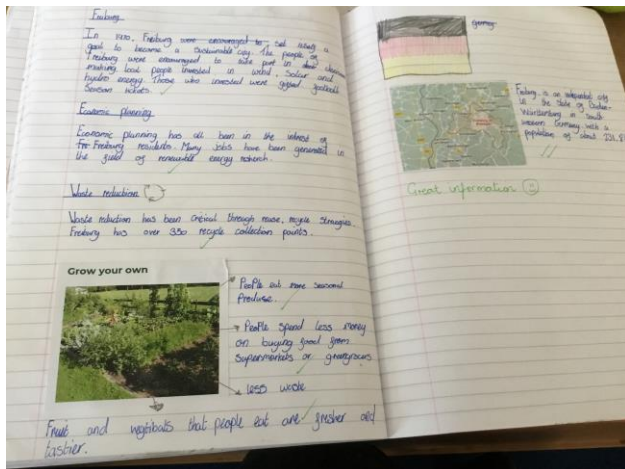 Freiburg
In 1970, Freiburg were encouraged to set using a
goal to become a sustainable city. The people of
Freiburg were encouraged to take part in decision
making local people invested in wind, solar and
hydro energy. Those who invested were gifted football
season tickets.
Economic planning
Economic planning has all been in the interest of
Freiburg residents. Many jobs have been generated in
the field of renewable energy reherch.
Waste reduction
Waste reduction has been critical through reuse, recycle strategies.
Freiburg has over 350 recycle collection points.
Grow your own
People eat more seasonal
Produce.
People spend less money
on buying food from
Supermarkets or greengrocers
less waste
Fruits and vegtibals that people eat are fresher and
tastier.
germany
Freiburg is an independent city
in the State of Baden-
Württemberg in south
western Germany with a
population of about
Great information